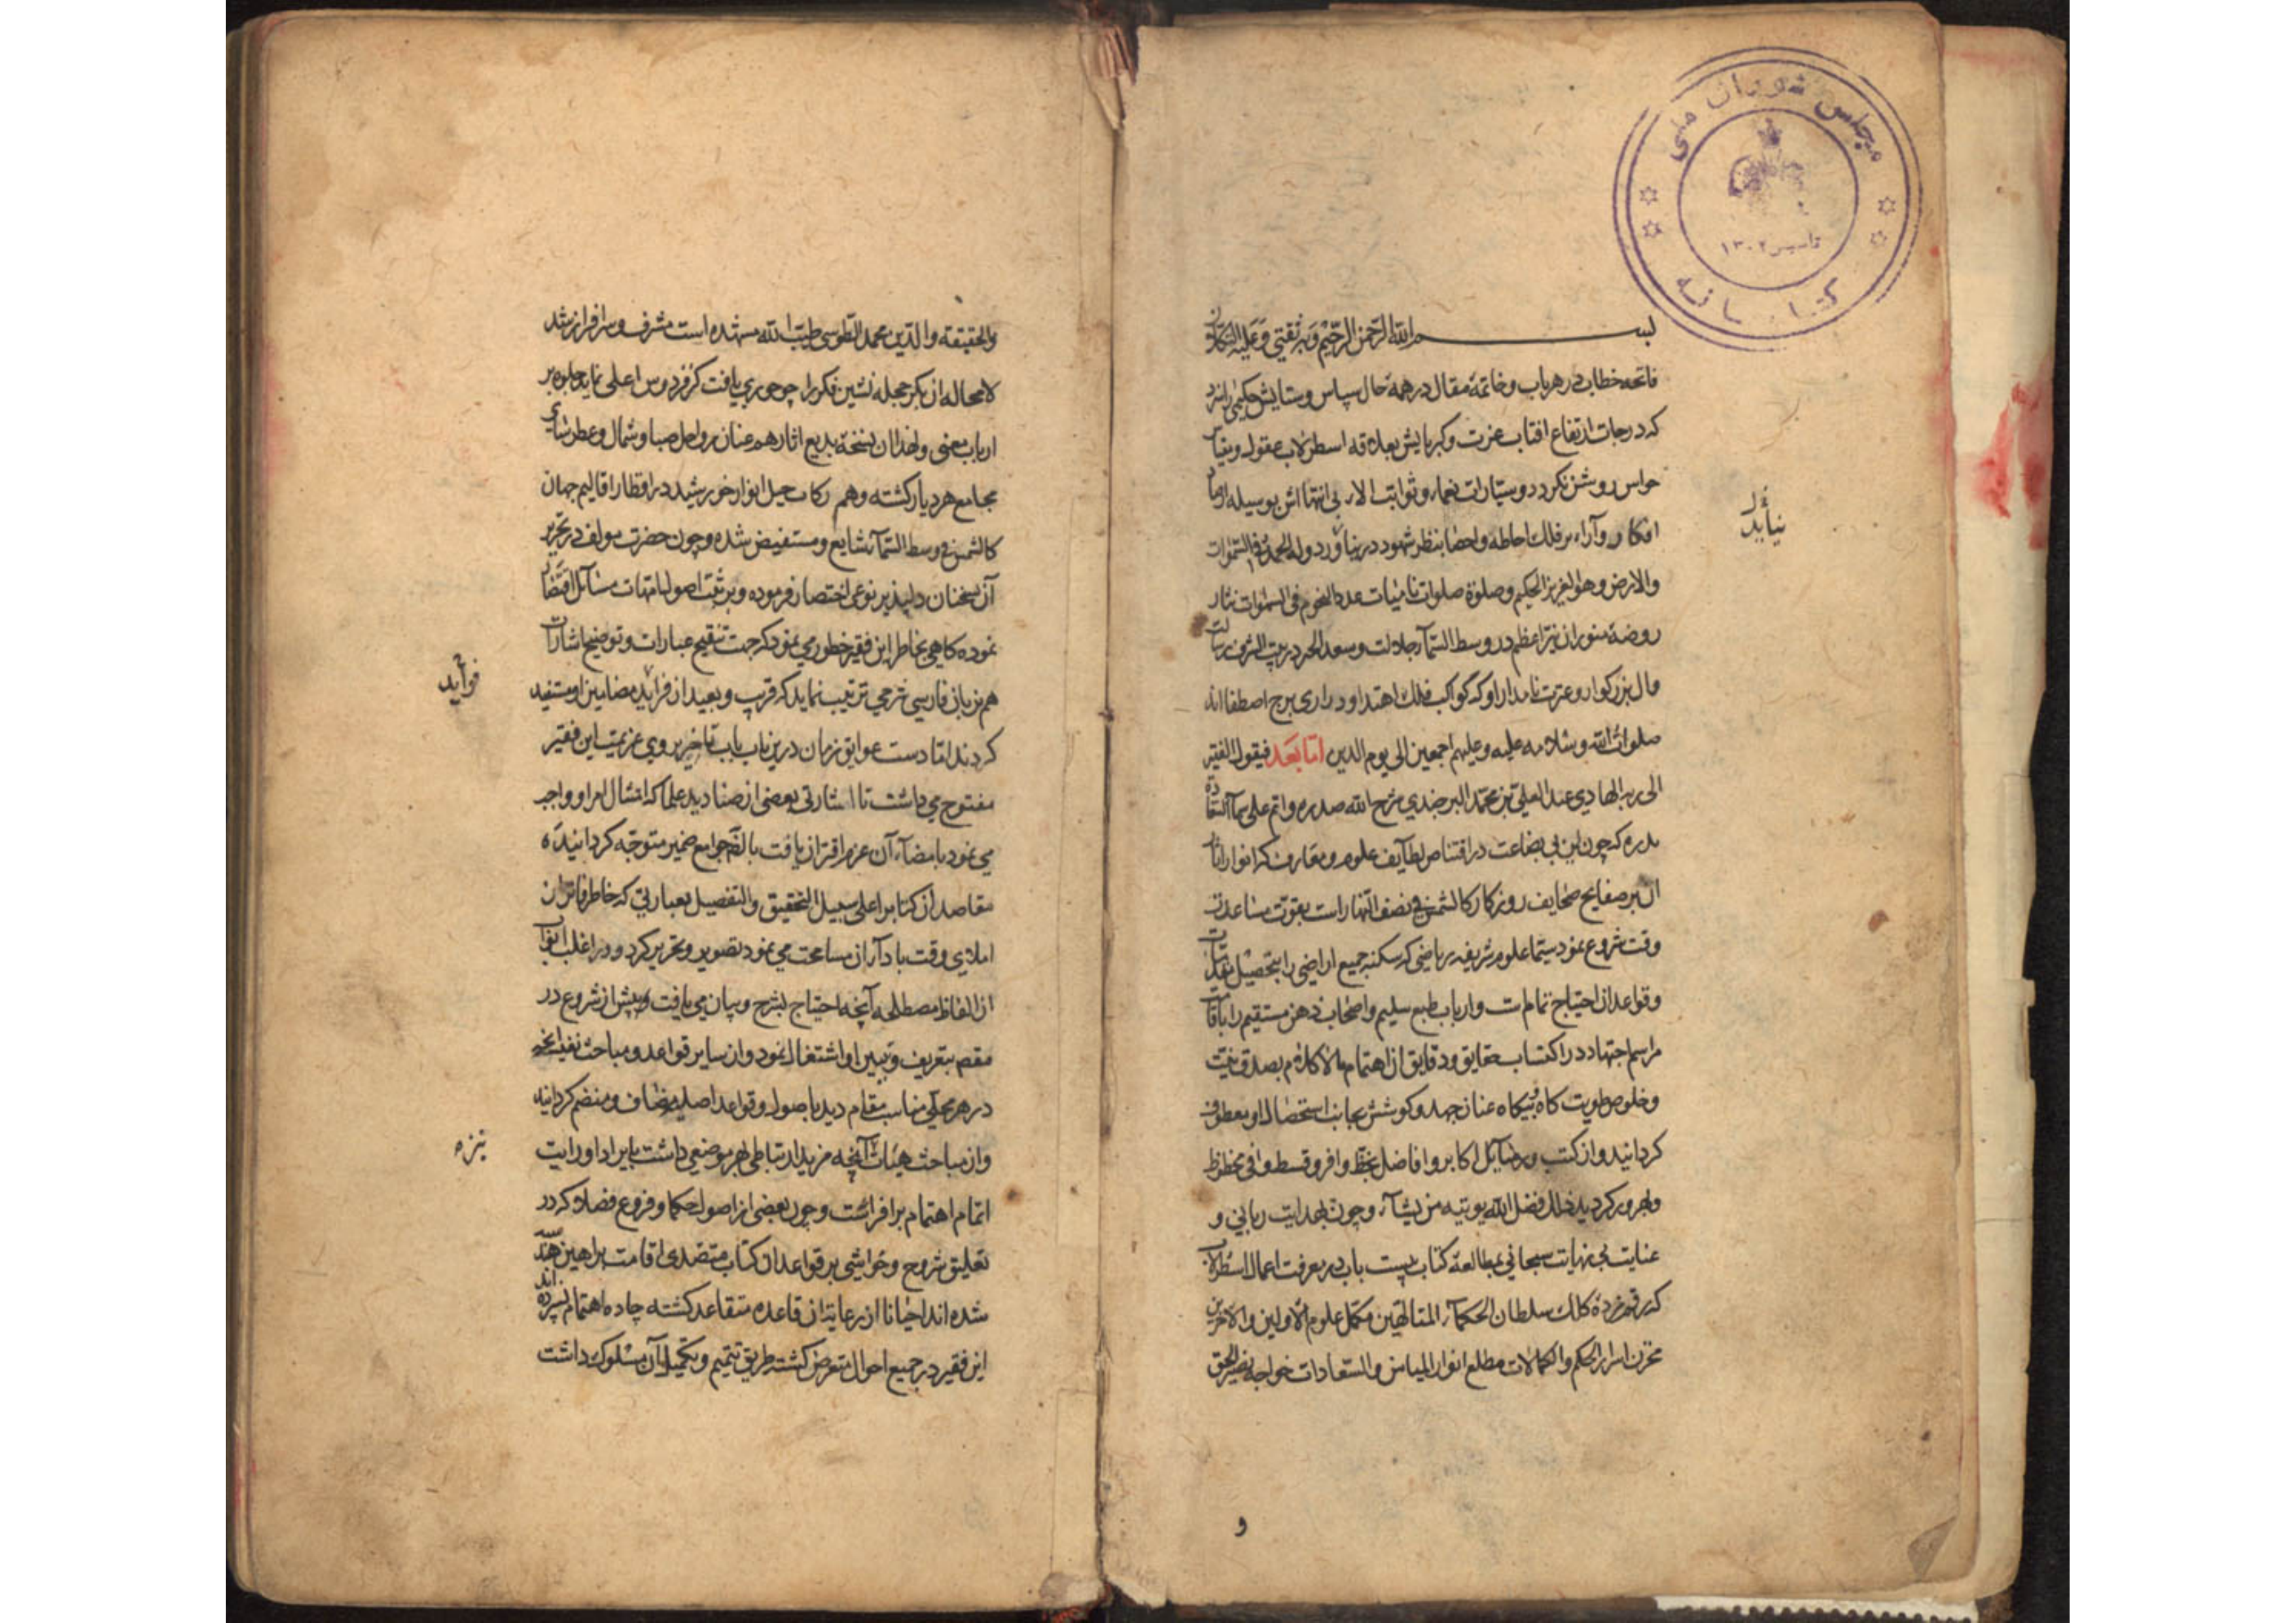 مجلس شورای ملی
تاسیس ۱۳۰۲
کتابخانه
بسم الله الرحمن الرحیم وبه ثقتی وعلیه التکلان
فاتحه خطاب در هر باب و خاتمهٔ مقال در همه حال سپاس و ستایش حکیمی را سزد
که درجات ارتفاع افتاب عزت و کبریایش بعلاقه اسطرلاب عقول و
حواس روشن نکردد و سیارات نعماء و ثوابت الاء بی انتهااش بوسیله
افکار و آراء بر فلک احاطه و احصا بنظر شهود در نیاورد وله الحمد فی السموات
والارض وهو العزیز الحکیم وصلوة صلوات نامیات عدد النجوم فی السموات نثار
روضهٔ منور ان نیر اعظم در وسط السمآء جلالت و سعد اکبر در بیت الشرف رسالت
وال بزرکوار و عترت نامدار او که کواکب فلک اهتدا و دراری برج اصطفااند
صلوات الله وسلامه علیه وعلیهم اجمعین الی یوم الدین اما بعد فیقول الفقیر
الی ربه الهادی عبد العلی بن محمد البرجندی شرح الله صدره واتم علی سمآء السعادة
بدره که چون این بی بضاعت در اقتناص لطایف علوم و معارف که انوار اثار
ان بر صفایح صحایف روزکار کالشمس فی نصف النهار است بقوت مساعدت
وقت شروع نمود سیما علوم شریفه ریاضی که سکنه جمیع اراضی را بتحصیل
و قواعد ان احتیاج تمام است و ارباب طبع سلیم و اصحاب ذهن مستقیم را
مراسم اجتهاد در اکتساب حقایق و دقایق ان اهتمام بصدق نیت
و خلوص طویت کاه و بیکاه عنان جهد و کوشش بجانب استحصال او معطوف
کردانید و از کتب و رسایل اکابر و افاضل بحظ وافر و قسط وافی محظوظ
و بهره‌ور کردید ذلک فضل الله یوتیه من یشآء و چون بهدایت ربانی و
عنایت بی نهایت سبحانی بمطالعهٔ کتاب بیست باب در معرفت اعمال اسطرلاب
که رقم زدهٔ کلک سلطان الحکمآء المتالهین مکمل علوم الاولین والاخرین
مخزن اسرار الحکم والکمالات مطلع انوار المیامن والسعادات خواجه نصیر الحق
نیاید
و
والحقیقة والدین محمد الطوسی طیب الله مشهده است مشرف و سرافراز شد
لامحاله ان بکر حجله نشین فکر را چو حوری یافت کز فردوس اعلی نماید جلوه بر
ارباب معنی و الحق ان نسخهٔ بدیع اثار هم عنان رواحل صبا و شمال و عطرسای
مجامع هر دیار کشته و هم رکاب خیل انوار خورشید در اقطار اقالیم جهان
کالشمس فی وسط السمآء شایع و مستفیض شده و چون حضرت مولف در تحریر
آن سخنان دلپذیر نوعی اختصار فرموده و بر ثبت اصول امهات مسائل اقتصار
نموده کاهی بخاطر این فقیر خطور می نمود که جهت تنقیح عبارات و توضیح اشارات
هم بزبان فارسی شرحی ترتیب نماید که قریب و بعید از فراید مضامین او مستفید
کردند اما دست عوایق زمان درین باب باب تاخیر بر روی عزیمت این فقیر
مفتوح می داشت تا اشارتی بعضی از صنادید علما که امتثال امر او واجب
می نمود بامضآء آن عزم اقتران یافت بالضروره جوامع ضمیر متوجه کردانیده
مقاصد ان کتاب را علی سبیل التحقیق والتفصیل بعبارتی که خاطر فاتر ان
املای وقت بادآء آن مسامحت می نمود تصویر و تحریر کرد و در اغلب ابواب
از الفاظ مصطلحه آنچه احتیاج بشرح و بیان می یافت پیش از شروع در
مقصد بتعریف و تبیین او اشتغال نمود و از سایر قواعد و مباحث نفیسه آنچه
در هر محلی مناسب مقام دید باصول و قواعد اصلیه مضاف و منضم کردانید
و از مباحث هیئات آنچه مزید ارتباطی بهر موضعی داشت بایراد او رایت
اتمام اهتمام برافراشت و چون بعضی از اصول حکما و فروع فضلا که در
تعلیق شروح و حواشی بر قواعد ان کتاب متصدی اقامت براهین هندسیه
شده اند احیانا از رعایت ان قاعده متقاعد کشته جاده اهتمام نسپرده اند
این فقیر در جمیع احوال متعرض کشته طریق تتمیم و تکمیل آن مسلوک داشت
فواید